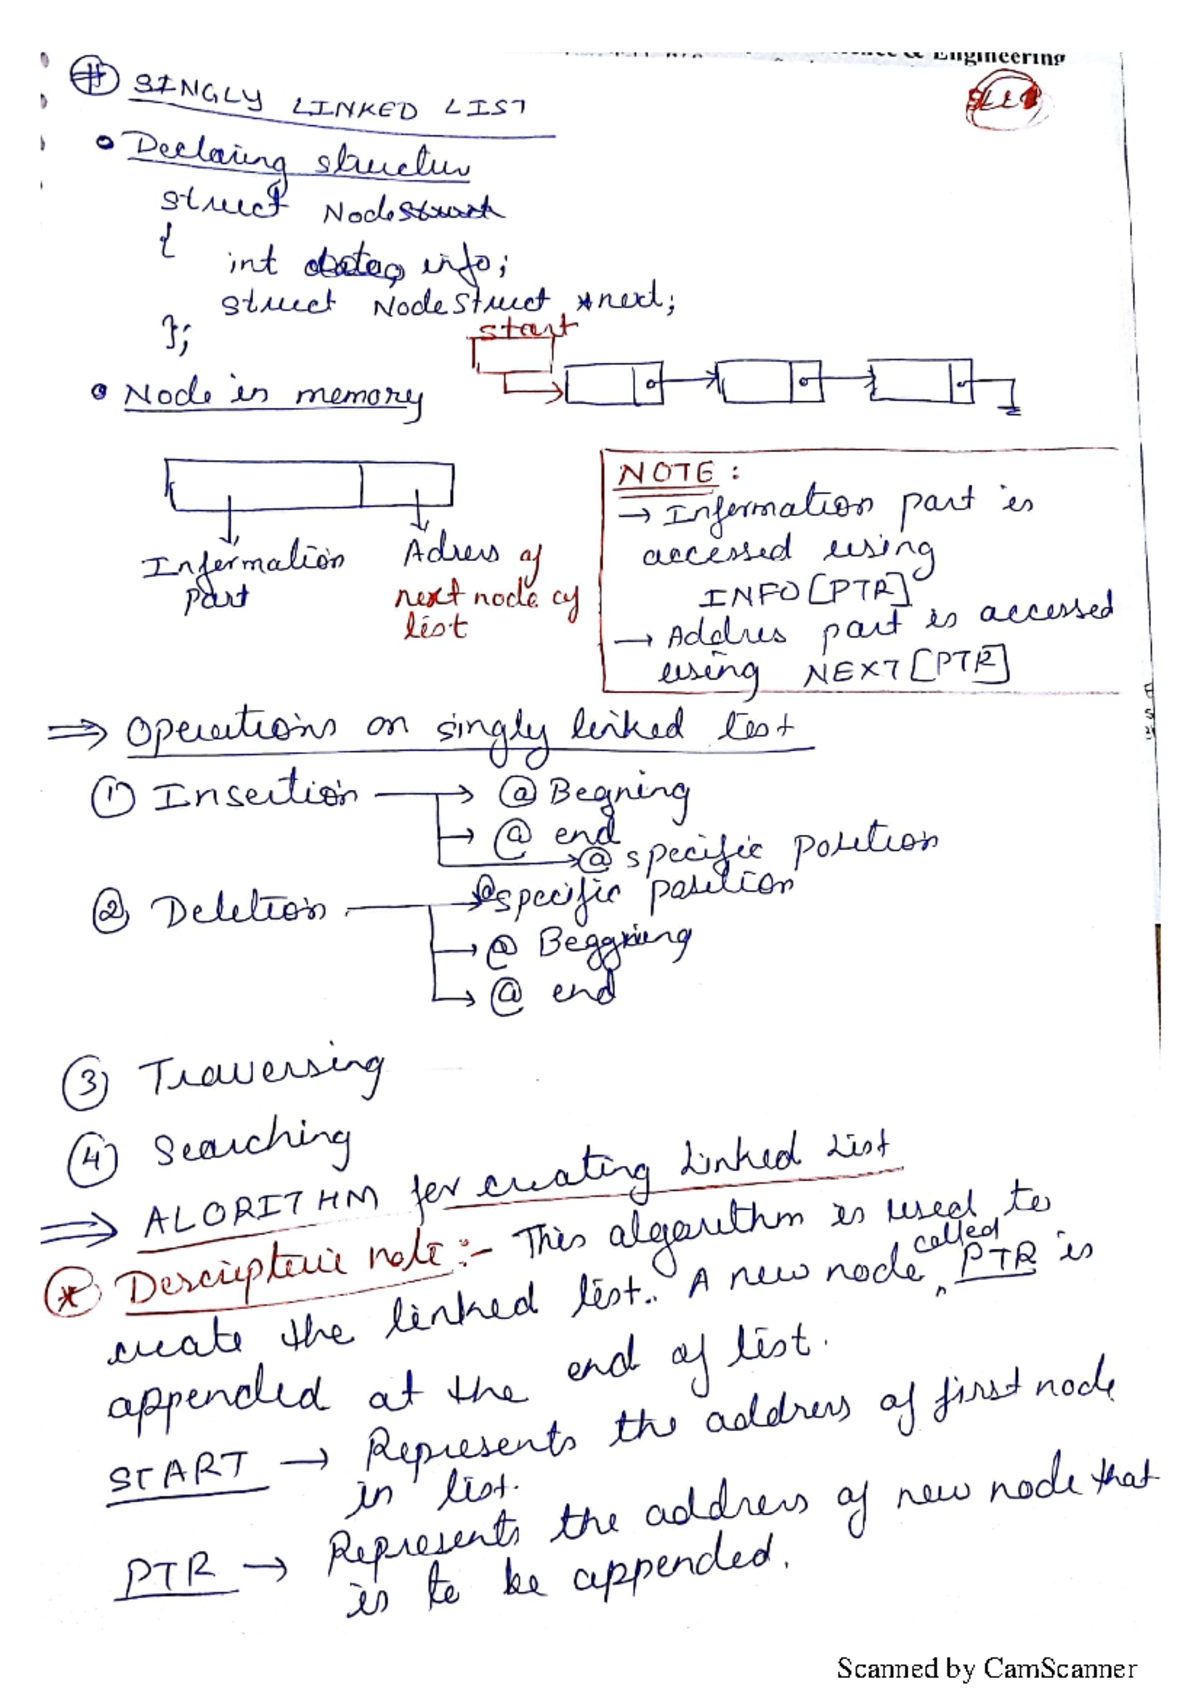 & Engineering
SLL
# SINGLY LINKED LIST
• Declaring structur
struct NodeStruct
{
int info;
struct NodeStruct *next;
};
start
• Node in memory
Information part
Adress of next node of list
NOTE :
→ Information part is
accessed using
INFO[PTR]
→ Addres part is accessed
using NEXT[PTR]
⇒ Operations on singly linked test
① Insertion → @ Begning
→ @ end
→ @ specific position
② Deletion → @ specific position
→ @ Beggning
→ @ end
③ Traversing
④ Searching
⇒ ALORITHM for creating Linked List
* Descriptive note :- This algorithm is used to
create the linked list. A new node called PTR is
appended at the end of list.
START → Represents the address of first node
in list.
PTR → Represents the address of new node that
is to be appended.
Scanned by CamScanner